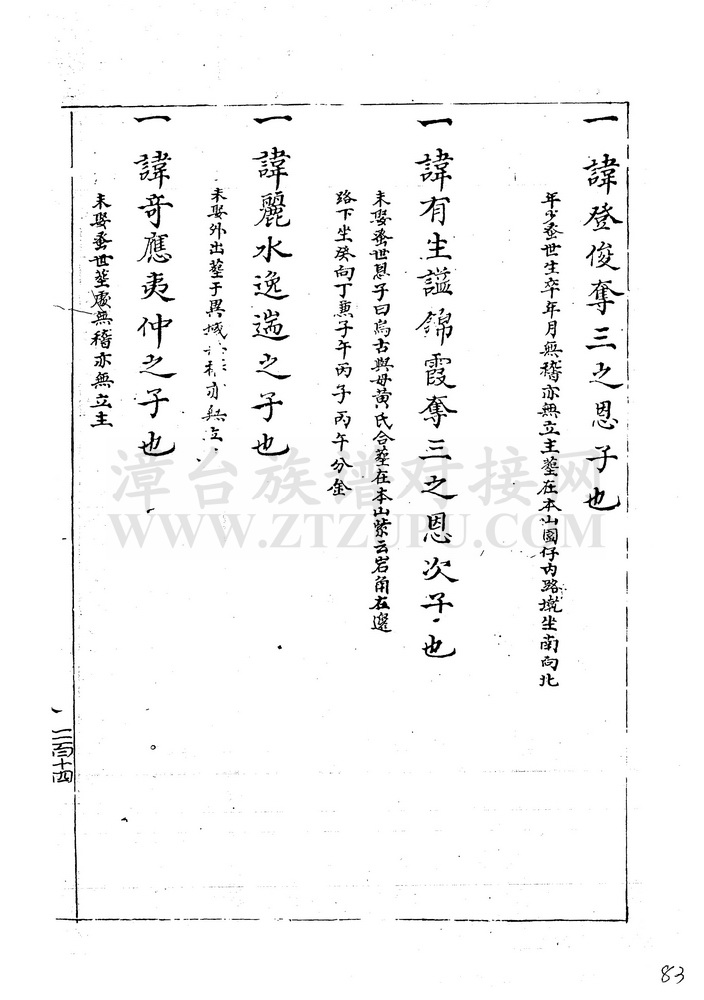 一諱登俊奪三之恩子也
年少蚤世生卒年月無稽亦無立主塟在本山園仔內路墘坐南向北
一諱有生謚錦霞奪三之恩次子也
未娶蚤世恩子曰烏古與母黃氏合塟在本山紫云岩角右邊
路下坐癸向丁兼子午丙子丙午分金
一諱麗水逸遄之子也
未娶外出塟于異域亦無立
一諱奇應夷仲之子也
未娶蚤世塟處無稽亦無立主
二百十四
83
漳台族谱对接网
WWW.ZTZUPU.COM